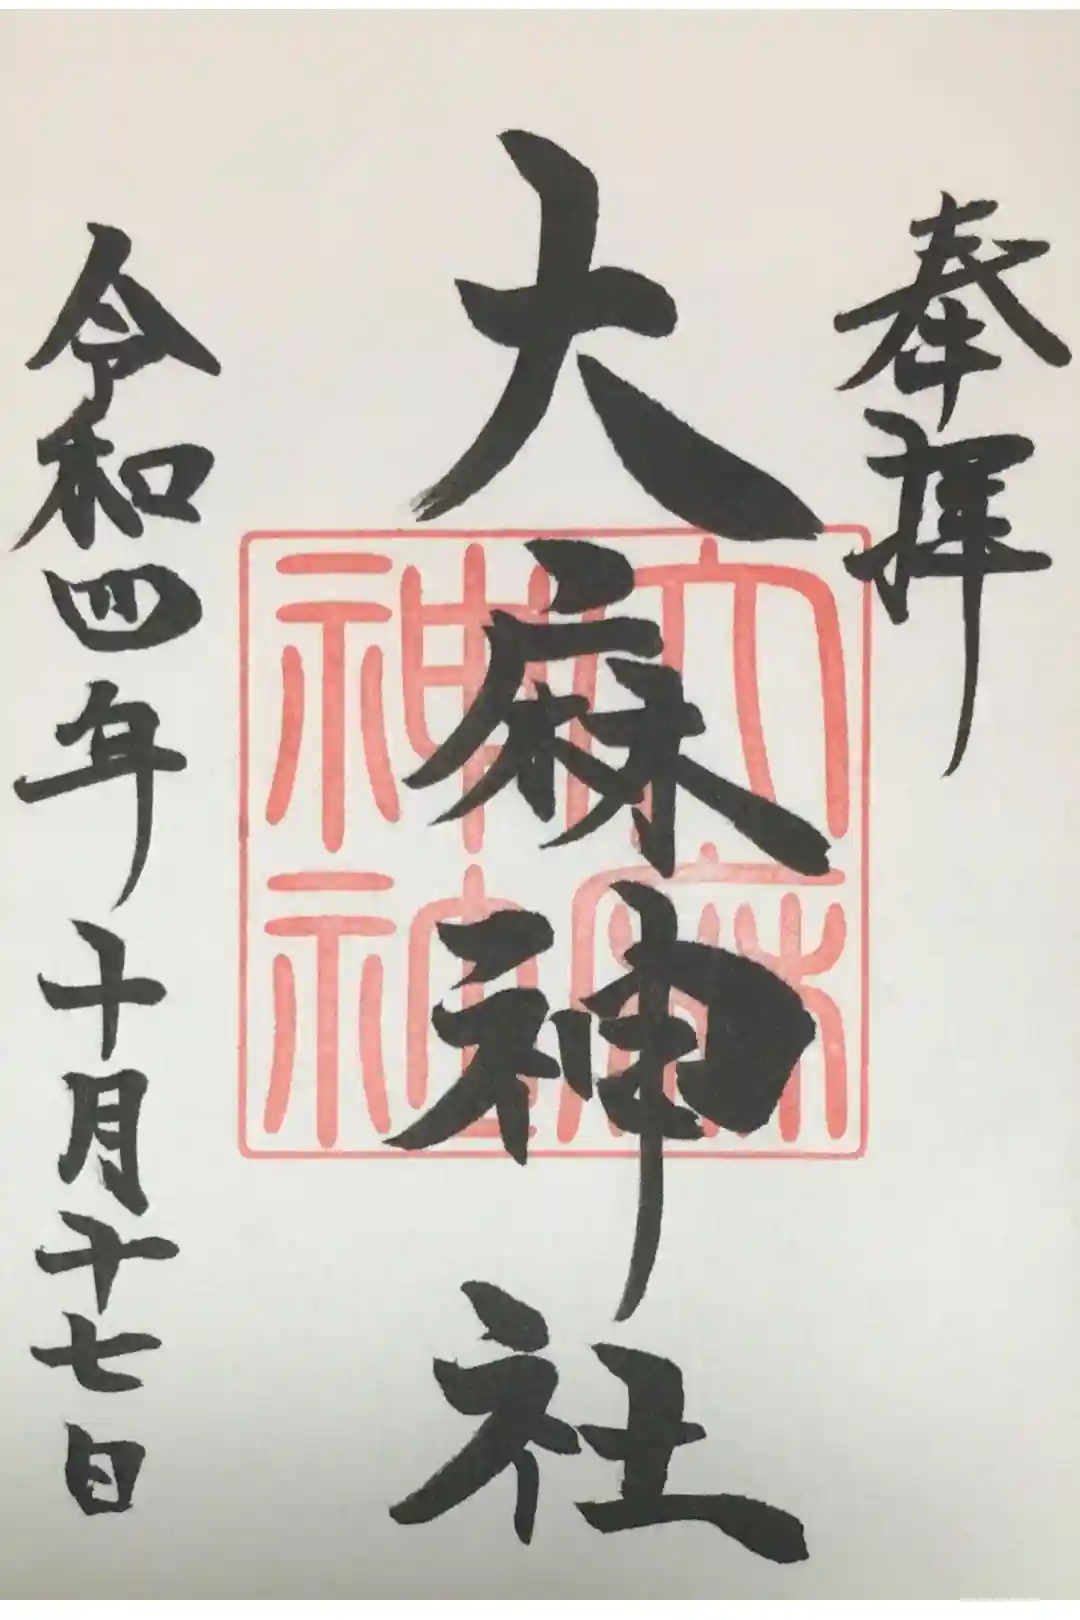 奉拝
大麻神社
大麻
神社
令和四年十月十七日